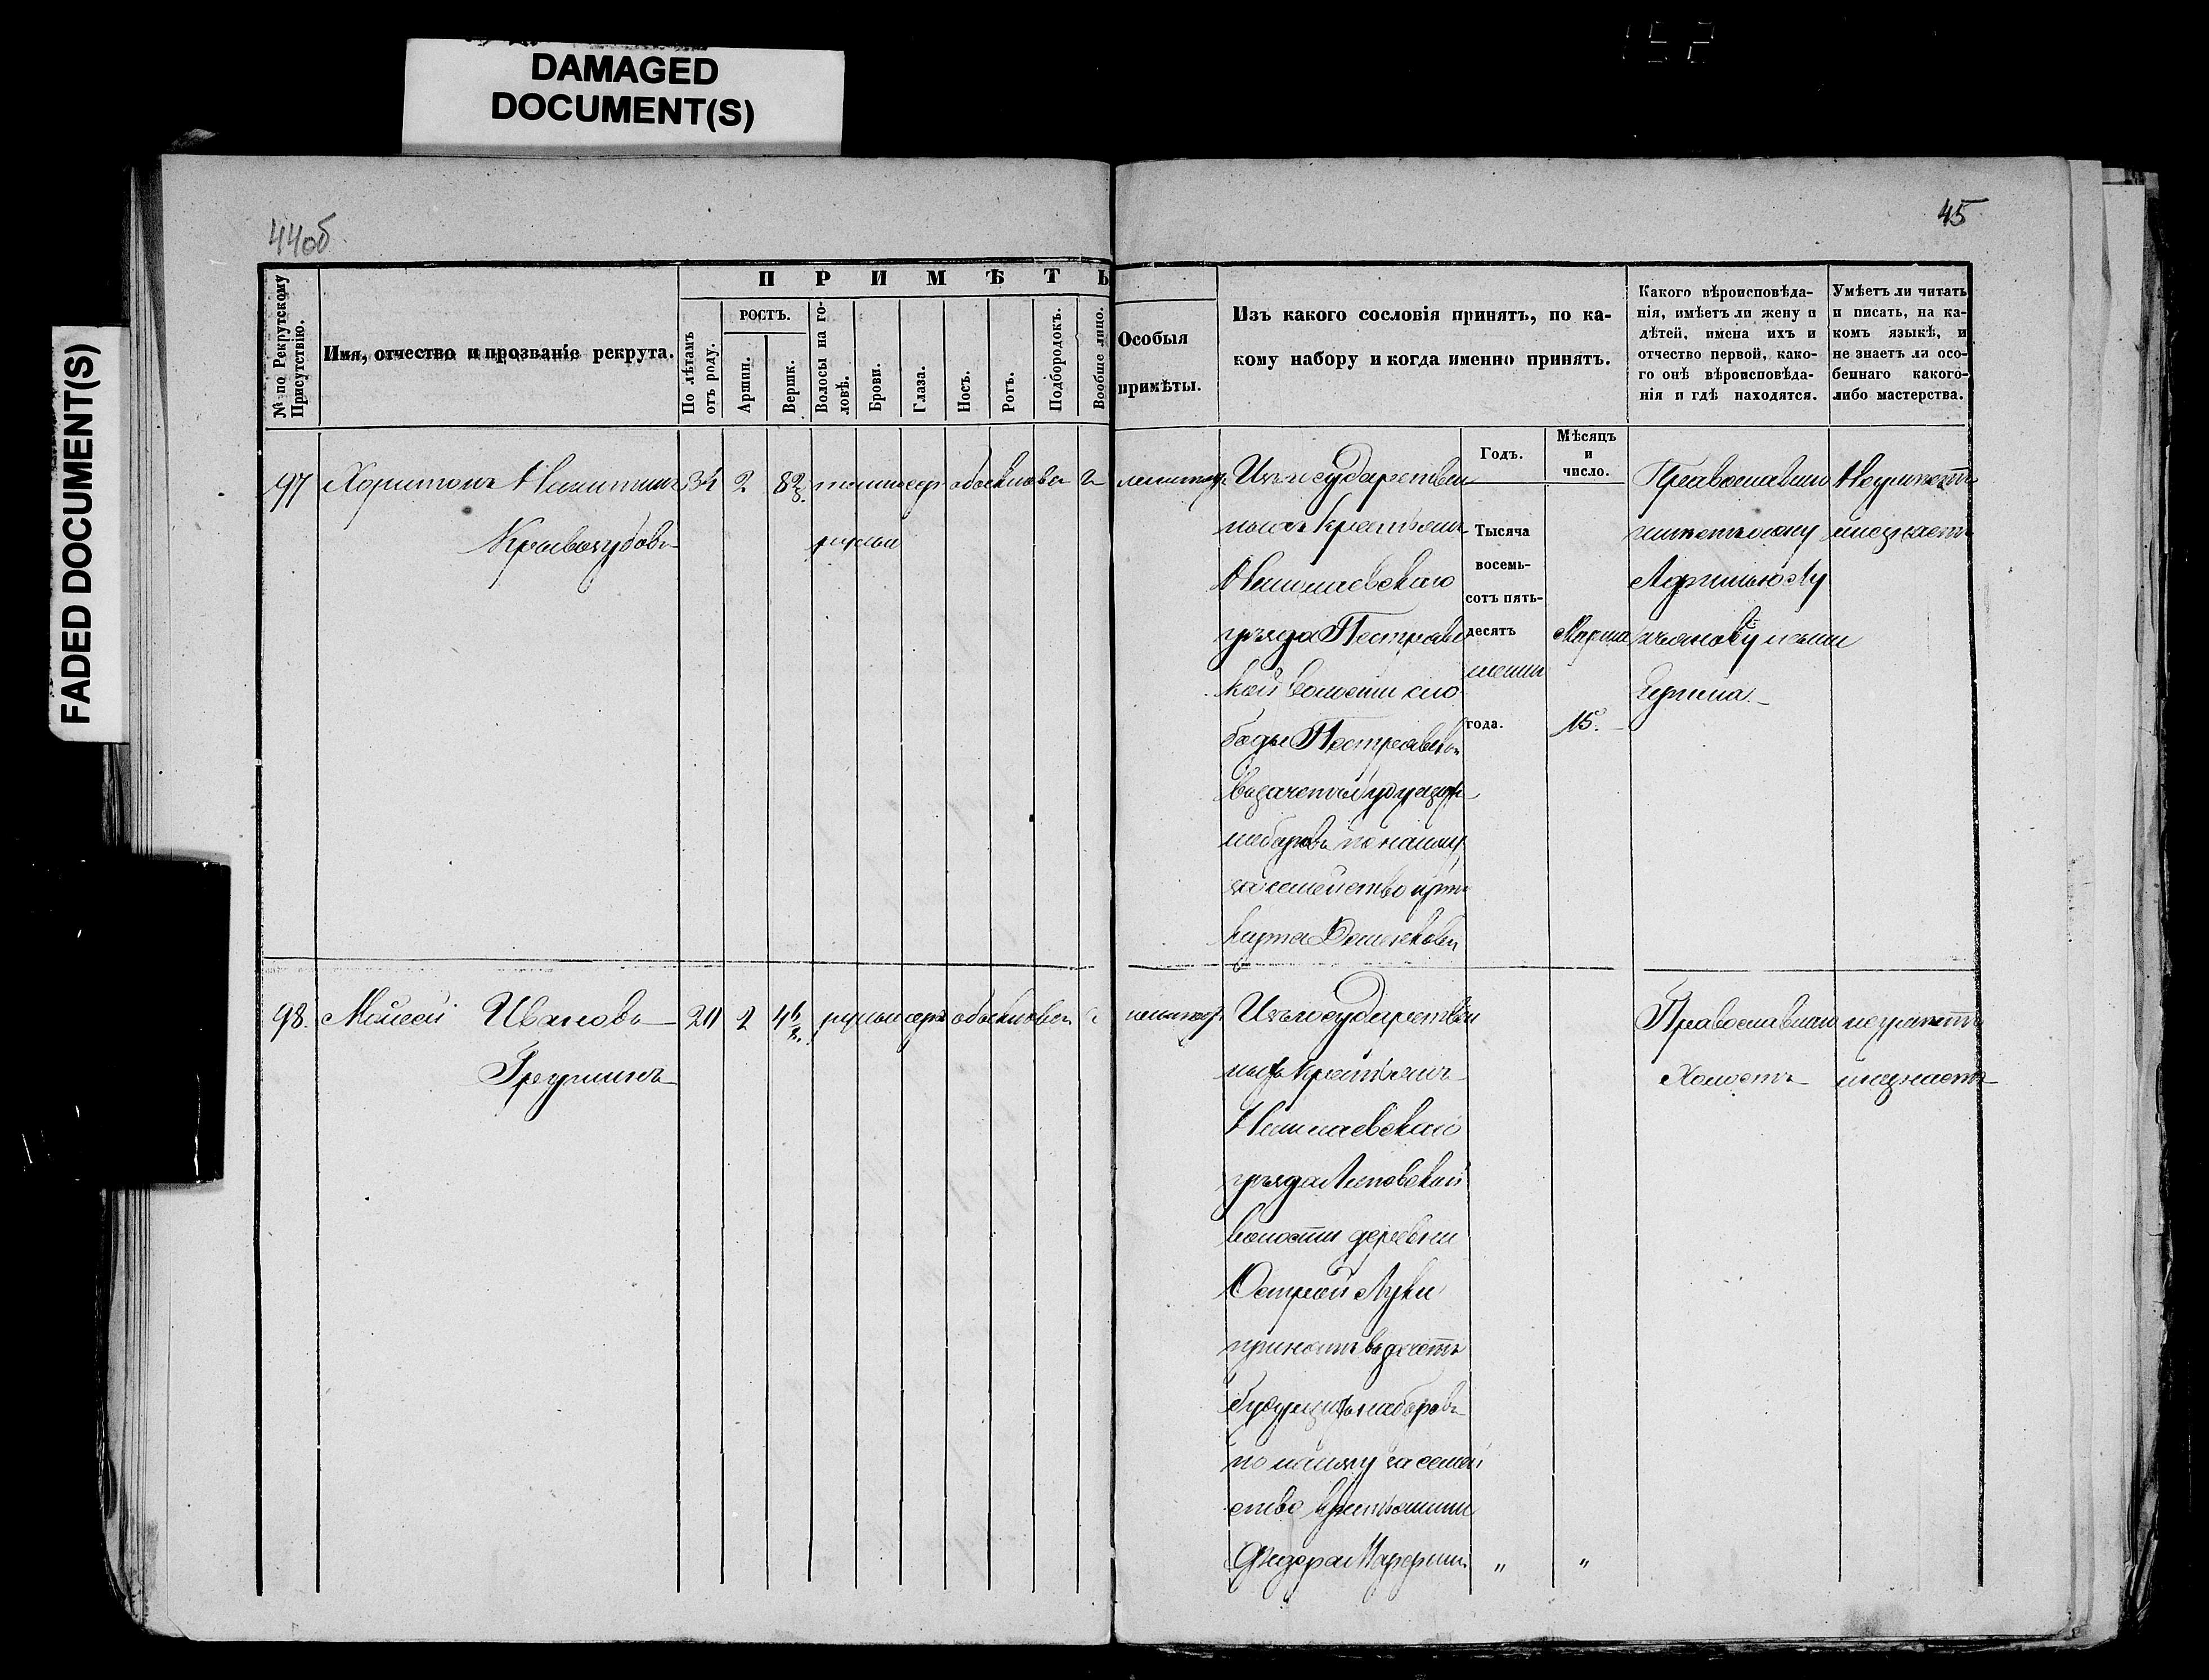 DAMAGED
DOCUMENT(S)
FADED DOCUMENT(S)
44об
45
№ по Рекрутскому Присутствію.
Имя, отчество и прозваніе рекрута.
ПРИМѢТЫ
По лѣтамъ отъ роду.
РОСТЪ.
Аршин.
Вершк.
Волосы на головѣ.
Брови.
Глаза.
Носъ.
Ротъ.
Подбородокъ.
Вообще лицо.
Особыя
примѣты.
Изъ какого сословія принятъ, по ка-
кому набору и когда именно принятъ.
Какого вѣроисповѣда-
нія, имѣетъ ли жену и
дѣтей, имена ихъ и
отчество первой, како-
го онѣ вѣроисповѣда-
нія и гдѣ находятся.
Умѣетъ ли читать
и писать, на ка-
комъ языкѣ, и
не знаетъ ли осо-
беннаго какого-
либо мастерства.
Годъ.
Мѣсяцъ
и
число.
97 Харитонъ Никитинъ 34 2 8
Кривозубовъ
русые
Изъ государствен
ныхъ крестьянъ
Николаевскаго
уѣзда Пестрав
кой волости сло
боды Пестравки
въ зачетъ будущихъ
наборовъ по найму
за семейство
Тысяча
восемь-
сотъ пять-
десятъ
года.
Марта
15.
Православнаго
имѣетъ жену
Неумѣетъ
и незнаетъ
98. Моисей Ивановъ 20 2 4 русые сер обыкновен
Изъ государствен
ныхъ крестьянъ
Николаевскаго
уѣзда Липовской
волости деревни
Острой Луки
принятъ въ зачетъ
будущихъ наборовъ
по найму за семей
ство крестьянина
Федора
"
"
Православнаго
Холостъ
неумѣетъ
и незнаетъ